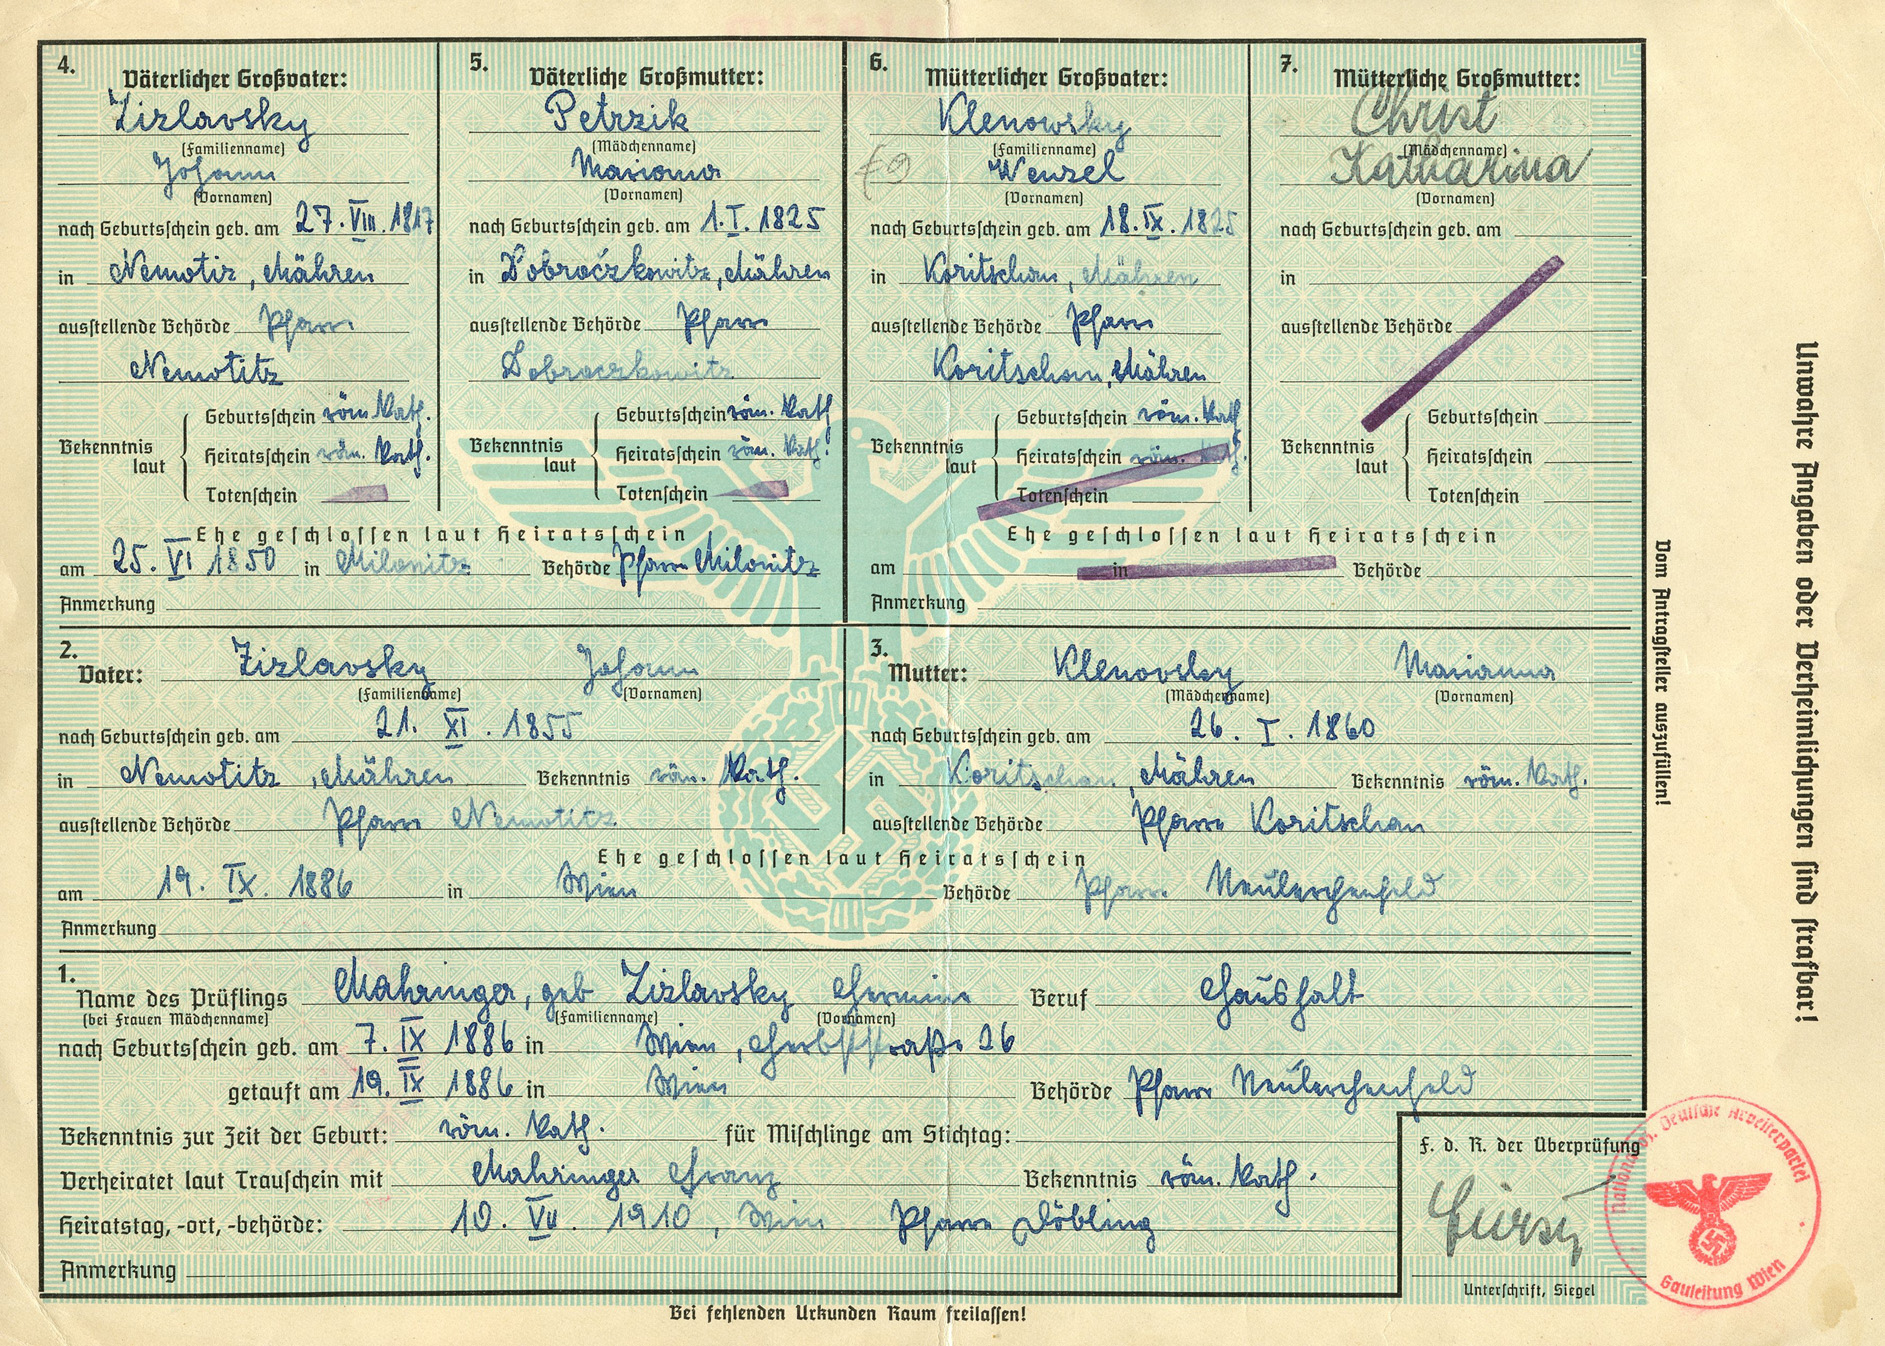 4. Väterlicher Großvater:
Zizlavsky
(Familienname)
Johann
(Vornamen)
nach Geburtsschein geb. am 27. VIII. 1817
in Nemotitz, Mähren
ausstellende Behörde Pfarre
Nemotitz
Bekenntnis laut
Geburtsschein röm. kath.
Heiratsschein röm. kath.
Totenschein
5. Väterliche Großmutter:
Petrzik
(Mädchenname)
Marianna
(Vornamen)
nach Geburtsschein geb. am 1. I. 1825
in Dobroczkowitz, Mähren
ausstellende Behörde Pfarre
Dobroczkowitz
Bekenntnis laut
Geburtsschein röm. kath
Heiratsschein röm. kath.
Totenschein
Ehe geschlossen laut Heiratsschein
am 25. VI 1850 in Milonitz Behörde Pfarre Milonitz
Anmerkung
6. Mütterlicher Großvater:
Klenowsky
(Familienname)
Wenzel
(Vornamen)
nach Geburtsschein geb. am 18. IX. 1825
in Koritschan, Mähren
ausstellende Behörde Pfarre
Koritschan, Mähren
Bekenntnis laut
Geburtsschein röm. kath
Heiratsschein röm. kath.
Totenschein
7. Mütterliche Großmutter:
Christ
(Mädchenname)
Katharina
(Vornamen)
nach Geburtsschein geb. am
in
ausstellende Behörde
Bekenntnis laut
Geburtsschein
Heiratsschein
Totenschein
Ehe geschlossen laut Heiratsschein
am in Behörde
Anmerkung
2. Vater: Zizlavsky Johann
(Familienname) (Vornamen)
nach Geburtsschein geb. am 21. XI. 1855
in Nemotitz, Mähren Bekenntnis röm. kath.
ausstellende Behörde Pfarre Nemotitz
3. Mutter: Klenovsky Marianna
(Mädchenname) (Vornamen)
nach Geburtsschein geb. am 26. I. 1860
in Koritschan, Mähren Bekenntnis röm. kath.
ausstellende Behörde Pfarre Koritschan
Ehe geschlossen laut Heiratsschein
am 19. IX. 1886 in Wien Behörde Pfarre Neulerchenfeld
Anmerkung
1. Name des Prüflings Mahringer, geb Zizlavsky Hermine Beruf Haushalt
(bei Frauen Mädchenname) (Familienname) (Vornamen)
nach Geburtsschein geb. am 7. IX 1886 in Wien, Herbststraße 26
getauft am 19. IX 1886 in Wien Behörde Pfarre Neulerchenfeld
Bekenntnis zur Zeit der Geburt: röm. kath. für Mischlinge am Stichtag:
Verheiratet laut Trauschein mit Mahringer Franz Bekenntnis röm. kath.
Heiratstag, -ort, -behörde: 10. VII. 1910, Wien Pfarre Döbling
Anmerkung
F. d. R. der Überprüfung
Unterschrift, Siegel
Nationalsoz. Deutsche Arbeiterpartei
Gauleitung Wien
Bei fehlenden Urkunden Raum freilassen!
Vom Antragsteller auszufüllen!
Unwahre Angaben oder Verheimlichungen sind strafbar!